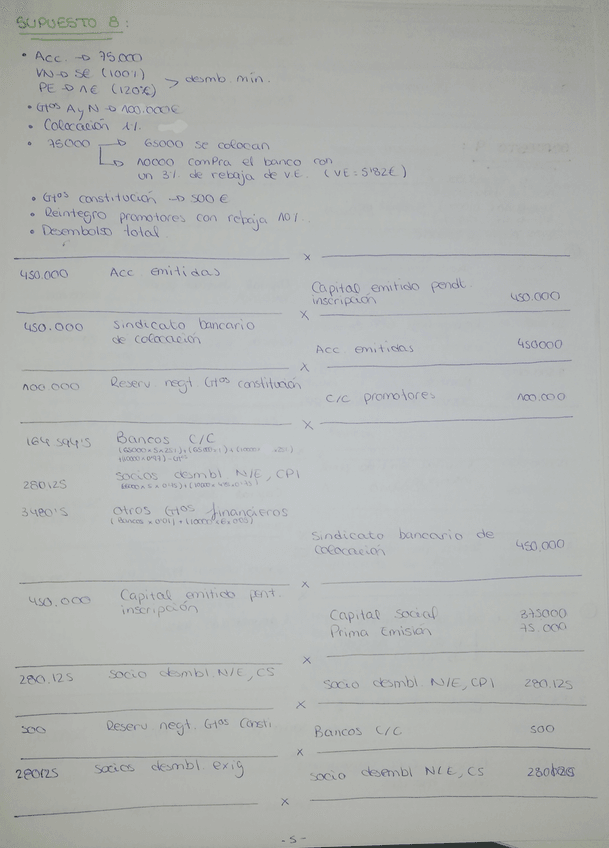 SUPUESTO 8:
• Acc. → 75000
VN → 5€ (100%)
PE → 1€ (120%) > desmb mín.
• Gtos A y N → 100.000€
• Colocación 1%
• 75000 → 65000 se colocan
→ 10000 compra el banco con
un 3% de rebaja de V.E. (VE = 5'82€)
• Gtos constitución → 500 €
• Reintegro promotores con rebaja 10%.
• Desembolso total.
x
450.000 Acc emitidas
Capital emitido pendt.
inscripción 450.000
x
450.000 Sindicato bancario
de colocación
Acc emitidas 450000
x
100.000 Reserv negt Gtos constitución
C/C promotores 100.000
x
164.594'5 Bancos C/C
280125 Socios desmbl. N/E, CPI
3480'5 otros Gtos financieros
Sindicato bancario de
colocación 450.000
x
450.000 Capital emitido pent.
inscripción
Capital social 375000
Prima Emisión 75.000
x
280.125 Socio desmbl. N/E, CS
Socio desmbl. N/E, CPI 280.125
x
500 Reserv negt. Gtos Consti.
Bancos C/C 500
x
280125 Socios desmbl. exig
Socio desembl N/E, CS
x
- 5 -